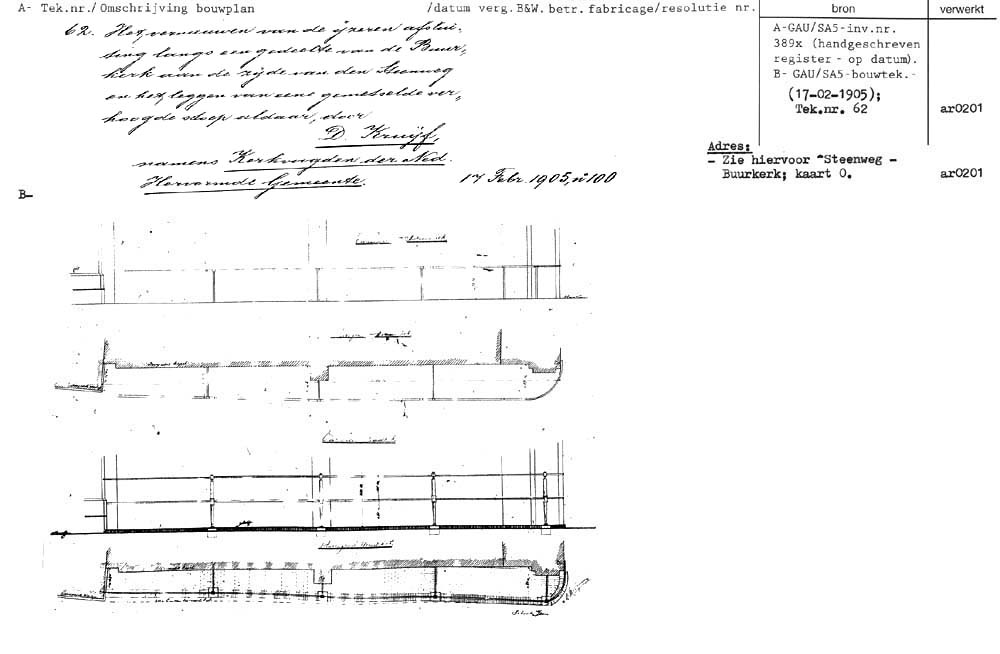 A- Tek.nr./Omschrijving bouwplan /datum verg.B&W. betr. fabricage/resolutie nr. bron verwerkt
62. Het vernieuwen van de ijzeren afslui-
ting langs een gedeelte van de Buur-
kerk aan de zijde van den Steenweg
en het leggen van eene gemetselde ver-
hoogde stoep aldaar, door
D. Kruijf,
namens Kerkvoogden der Ned.
Hervormde Gemeente.
17 Febr. 1905, nº 100
A-GAU/SA5-inv.nr.
389x (handgeschreven
register - op datum).
B- GAU/SA5-bouwtek.-
(17-02-1905);
Tek.nr. 62 ar0201
Adres:
- Zie hiervoor "Steenweg -
Buurkerk; kaart 0. ar0201
B-